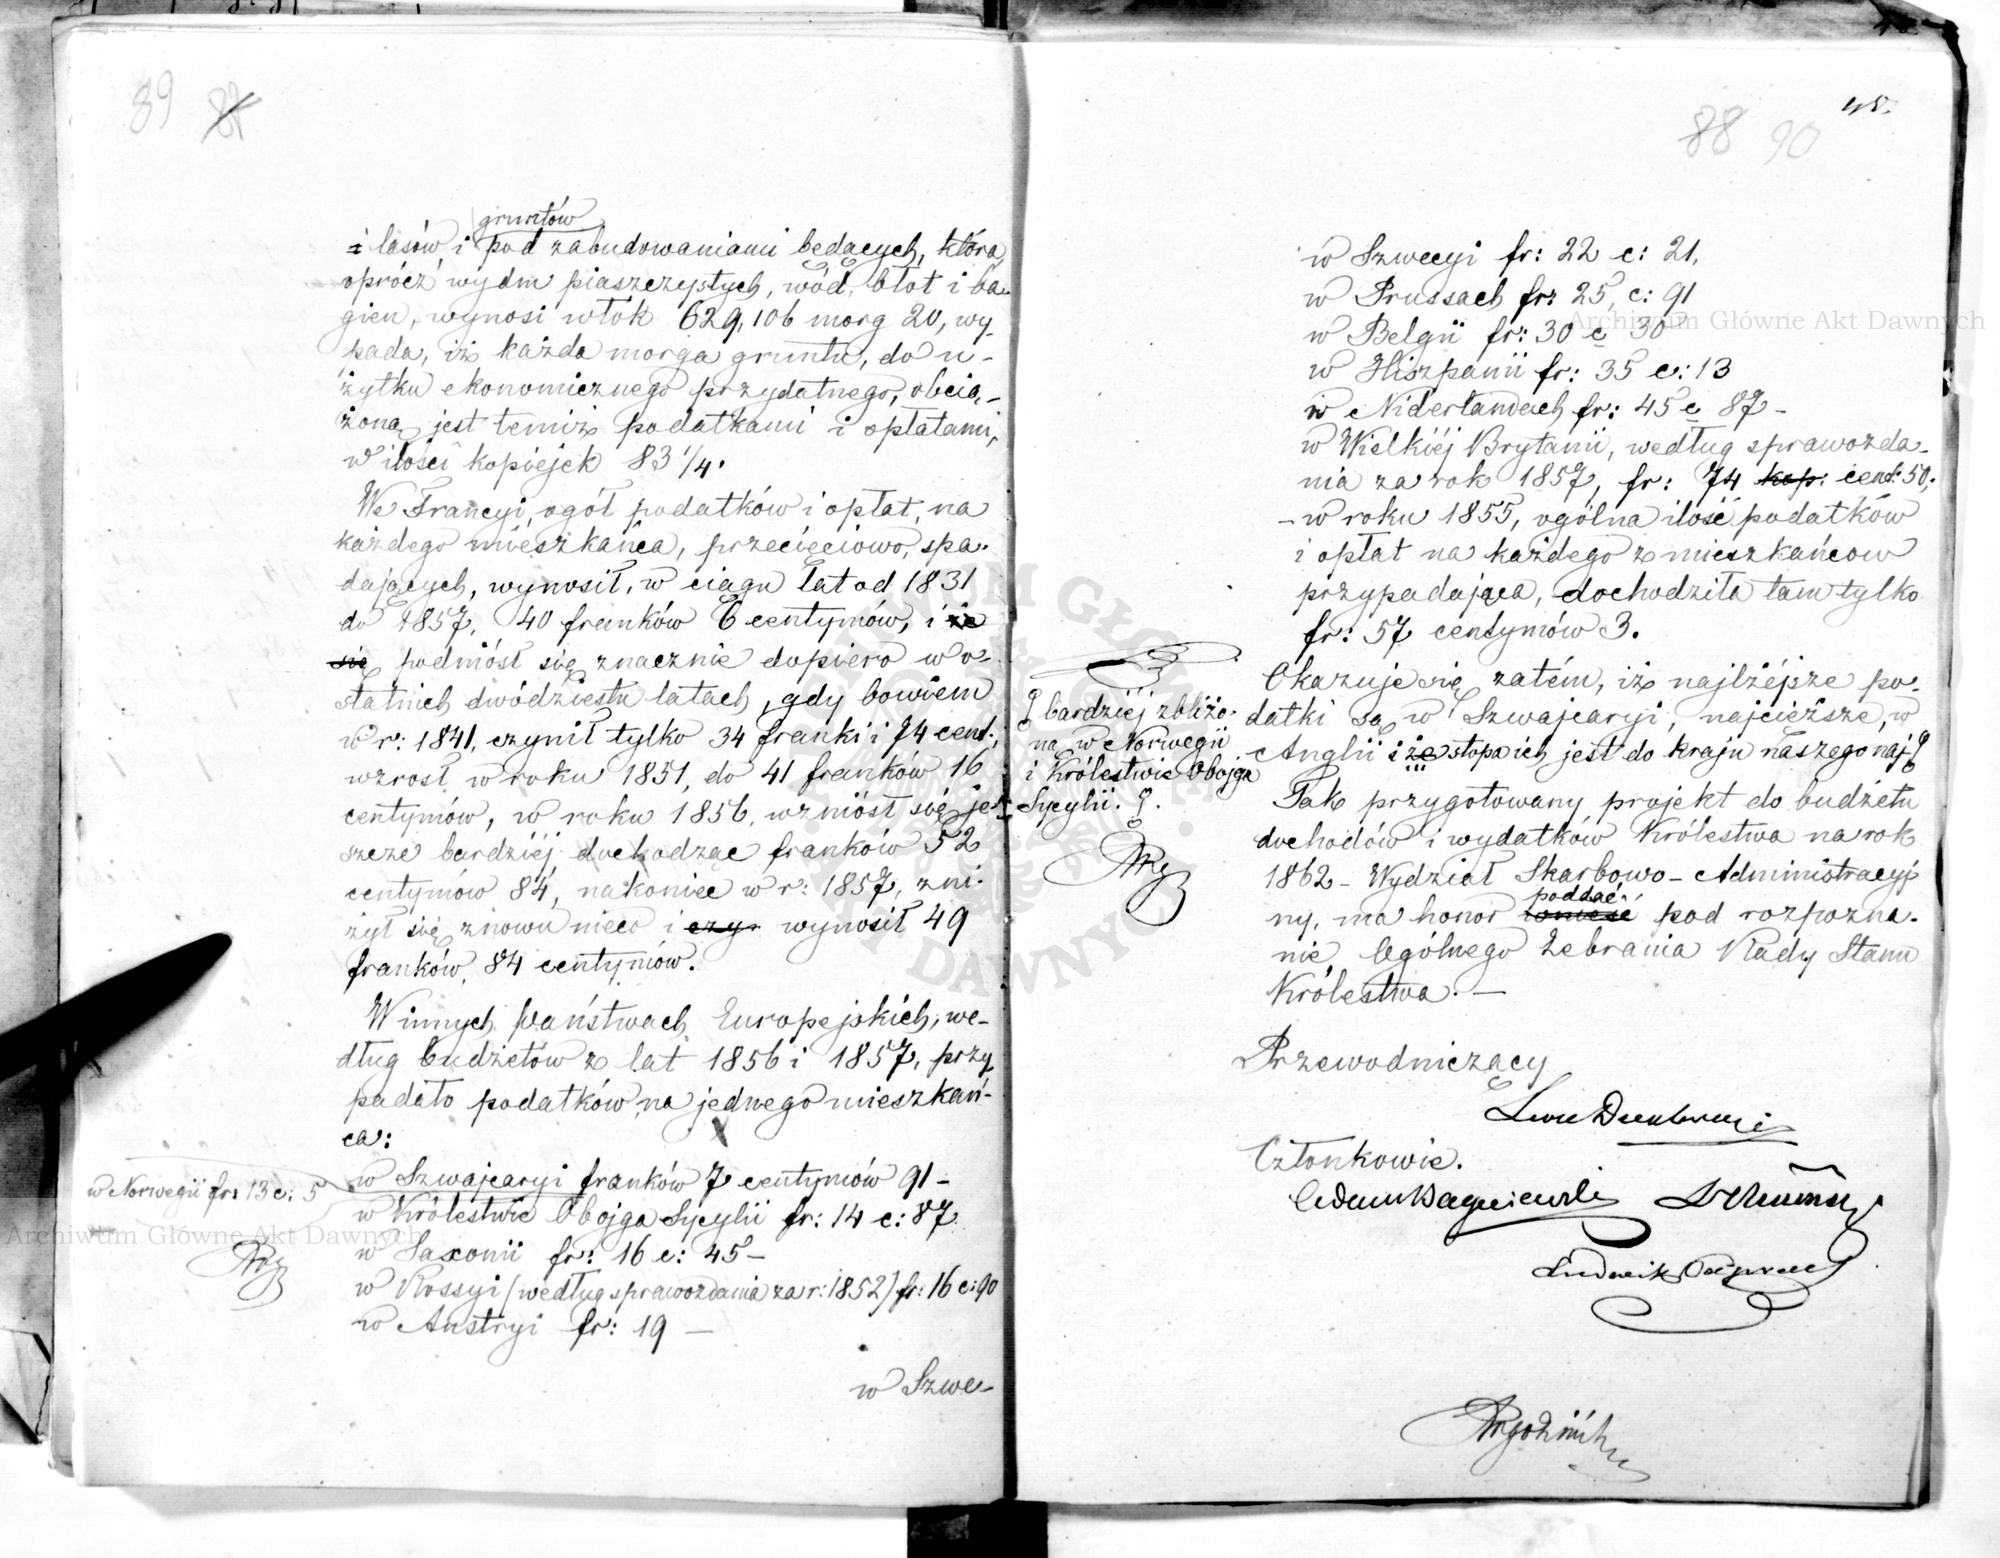 89 87
gruntów
i lasów, i pod zabudowaniami będących, która,
oprócz wydm piaszczystych, wód, błot i ba-
gien, wynosi włók 629,106 morg 20, wy-
pada, iż każda morga gruntu, do u-
żytku ekonomicznego przydatnego, obcią-
żona jest temiż podatkami i opłatami,
w ilości kopiejek 83 1/4.
We Francyi, ogół podatków i opłat, na
każdego mieszkańca, przecięciowo, spa-
dających, wynosił, w ciągu lat od 1831
do 1857, 40 franków 6 centymów, i że
się podniósł się znacznie dopiero w o-
statnich dwódziestu latach, gdy bowiem
w r: 1841, czynił tylko 34 franki i 74 cent:,
wzrosł w roku 1851, do 41 franków 16
centymów, w roku 1856, wzniósł się je-
szcze bardziéj dochodząc franków 52
centymów 84, nakoniec w r: 1857, zni-
żył się znowu nieco i czy wynosił 49
franków 84 centymów.
W innych państwach Europejskich, we-
dług budżetów z lat 1856 i 1857, przy-
padało podatków na jednego mieszkań-
ca:
w Szwajcaryi franków 7 centymów 91 -
w Norwegii fr: 13 c: 5
w Królestwie Obojga Sycylii fr: 14 c: 87
w Saxonii fr: 16 c: 45 -
w Rossyi (według sprawozdania za r: 1852) fr: 16 c: 90
w Austryi fr: 19 —
w Szwe-
45.
88 90
w Szwecyi fr: 22 c: 21.
w Prussach fr: 25, c: 91
w Belgii fr: 30 c 30
w Hiszpanii fr: 35 c: 13
w Niderlandach fr: 45 c 87 -
w Wielkiéj Brytanii, według sprawozda-
nia za rok 1857, fr: 74 kop: cent: 50;
- w roku 1855, ogólna ilość podatków
i opłat na każdego z mieszkańcow
przypadająca, dochodziła tam tylko
fr: 57 centymów 3.
Okazuje się zatém, iż najlżéjsze po-
datki są w Szwajcaryi, najcięższe, w
Anglii i że stopa ich jest do kraju naszego naj
bardziéj zbliżo-
na w Norwegii
i Królestwie Obojga
Sycylii.
Tak przygotowany projekt do budżetu
dochodów i wydatków Królestwa na rok
1862 - Wydział Skarbowo - Administracyj-
poddać
ny, ma honor wnieść pod rozpozna-
nie Ogólnego Zebrania Rady Stanu
Królestwa. —
Przewodniczący
Członkowie.
Ludwik
Archiwum Główne Akt Dawnych
Archiwum Główne Akt Dawnych
ARCHIWUM GŁÓWNE AKT DAWNYCH